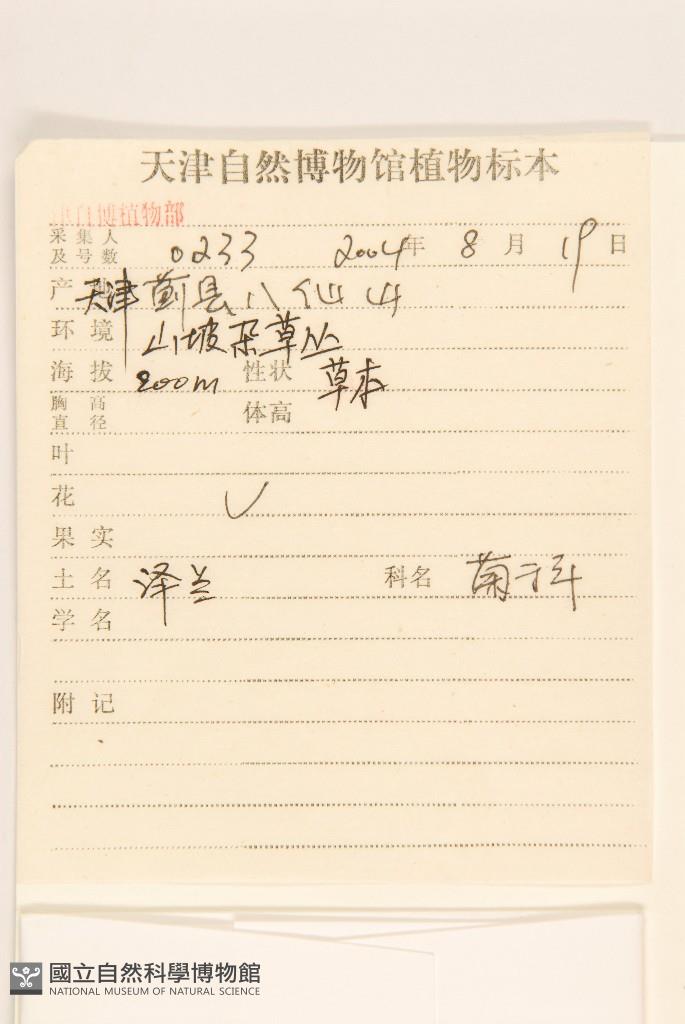 天津自然博物馆植物标本
津自博植物部
采集人
及号数 0233 2004年 8月 19日
产地 天津蓟县八仙山
环境 山坡杂草丛
海拔 800m 性状 草本
胸高
直径 体高
叶
花 ✓
果实
土名 泽兰 科名 菊科
学名
附记
國立自然科學博物館
NATIONAL MUSEUM OF NATURAL SCIENCE